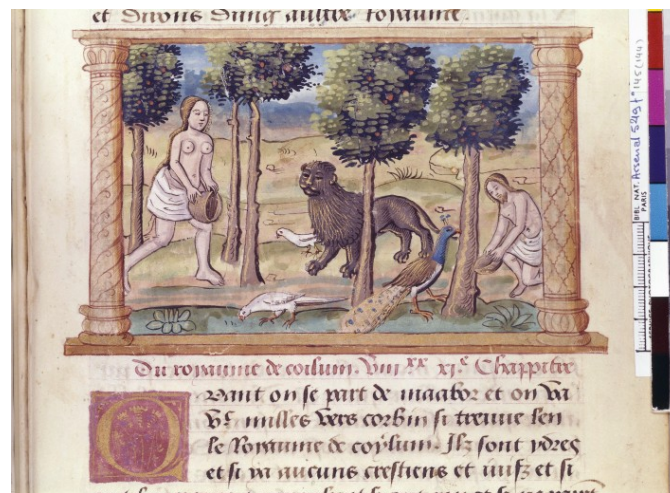 et dirons dung aultre royaume.
Du royaume de coilum. viii xx xi.e Chappitre
Quant on se part de maabor et on va
v.c milles vers corbin si treuue len
le Royaume de coylum. Ilz sont ydres
et si va aucuns crestiens et iuifz et si
BIBL. NAT. Arsenal 5219 f° 145 (144)
PARIS